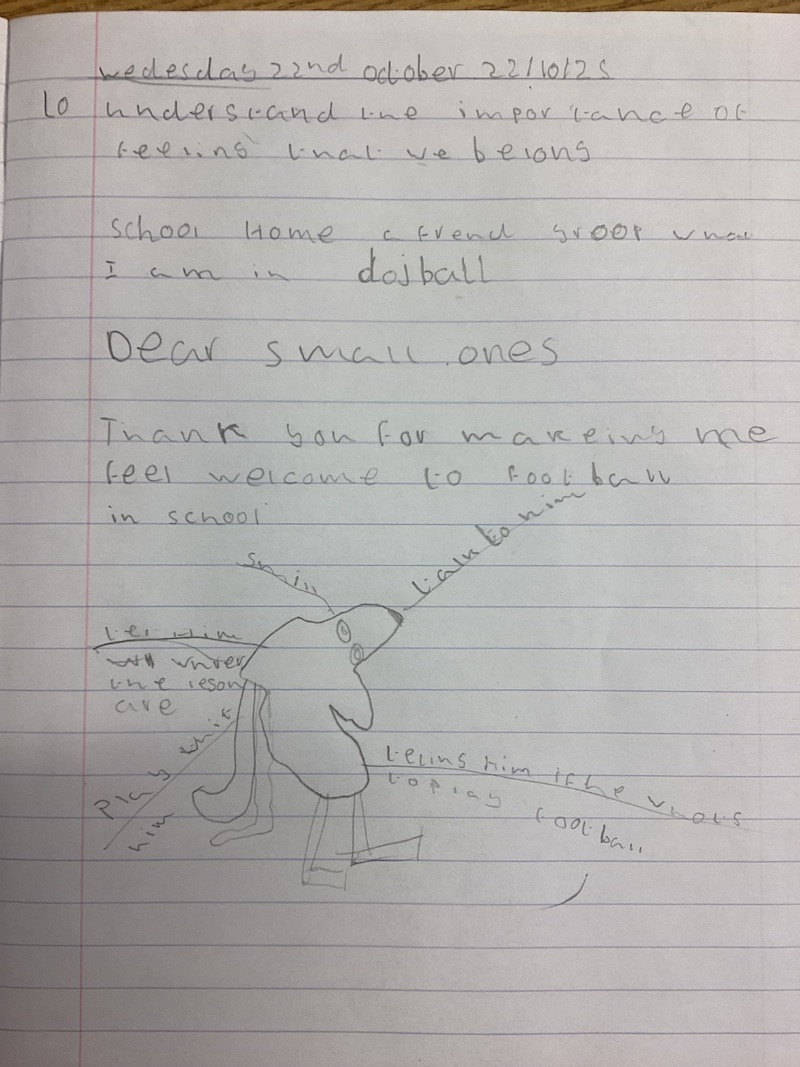 wedesday 22nd october 22/10/25
LO understand the importance of
feeling that we belong
School Home a frend groop vhat
I am in dojball
Dear small ones
Thank you for makeing me
feel welcome to football
in school
Smin
talk to him
Let Him
vhter
the leson
are
Play
him
teling him if he vhats
to play football